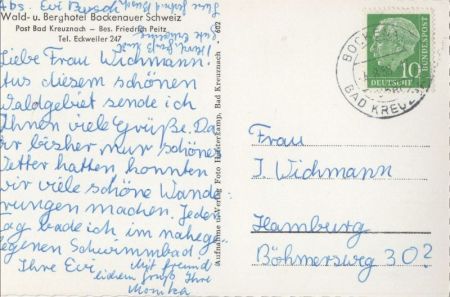 Abs. Evi
Wald- u. Berghotel Bockenauer Schweiz
Post Bad Kreuznach – Bes. Friedrich Peitz
Tel. Eckweiler 247
Liebe Frau Wichmann!
Aus diesem schönen
Waldgebiet sende ich
Ihnen viele Grüße. Da
wir bisher nur schönes
Wetter hatten konnten
wir viele schöne Wande-
rungen machen. Jeden
Tag bade ich im nahege-
legenen Schwimmbad
Ihre Evi
Mit freund
lichem Gruß Ihre
Monika
Aufnahme u. Verlag Foto Bad Kreuznach - 602
10
DEUTSCHE
BUNDESPOST
BAD KREUZ
Frau
I. Wichmann
Hamburg
Böhmersweg 30²